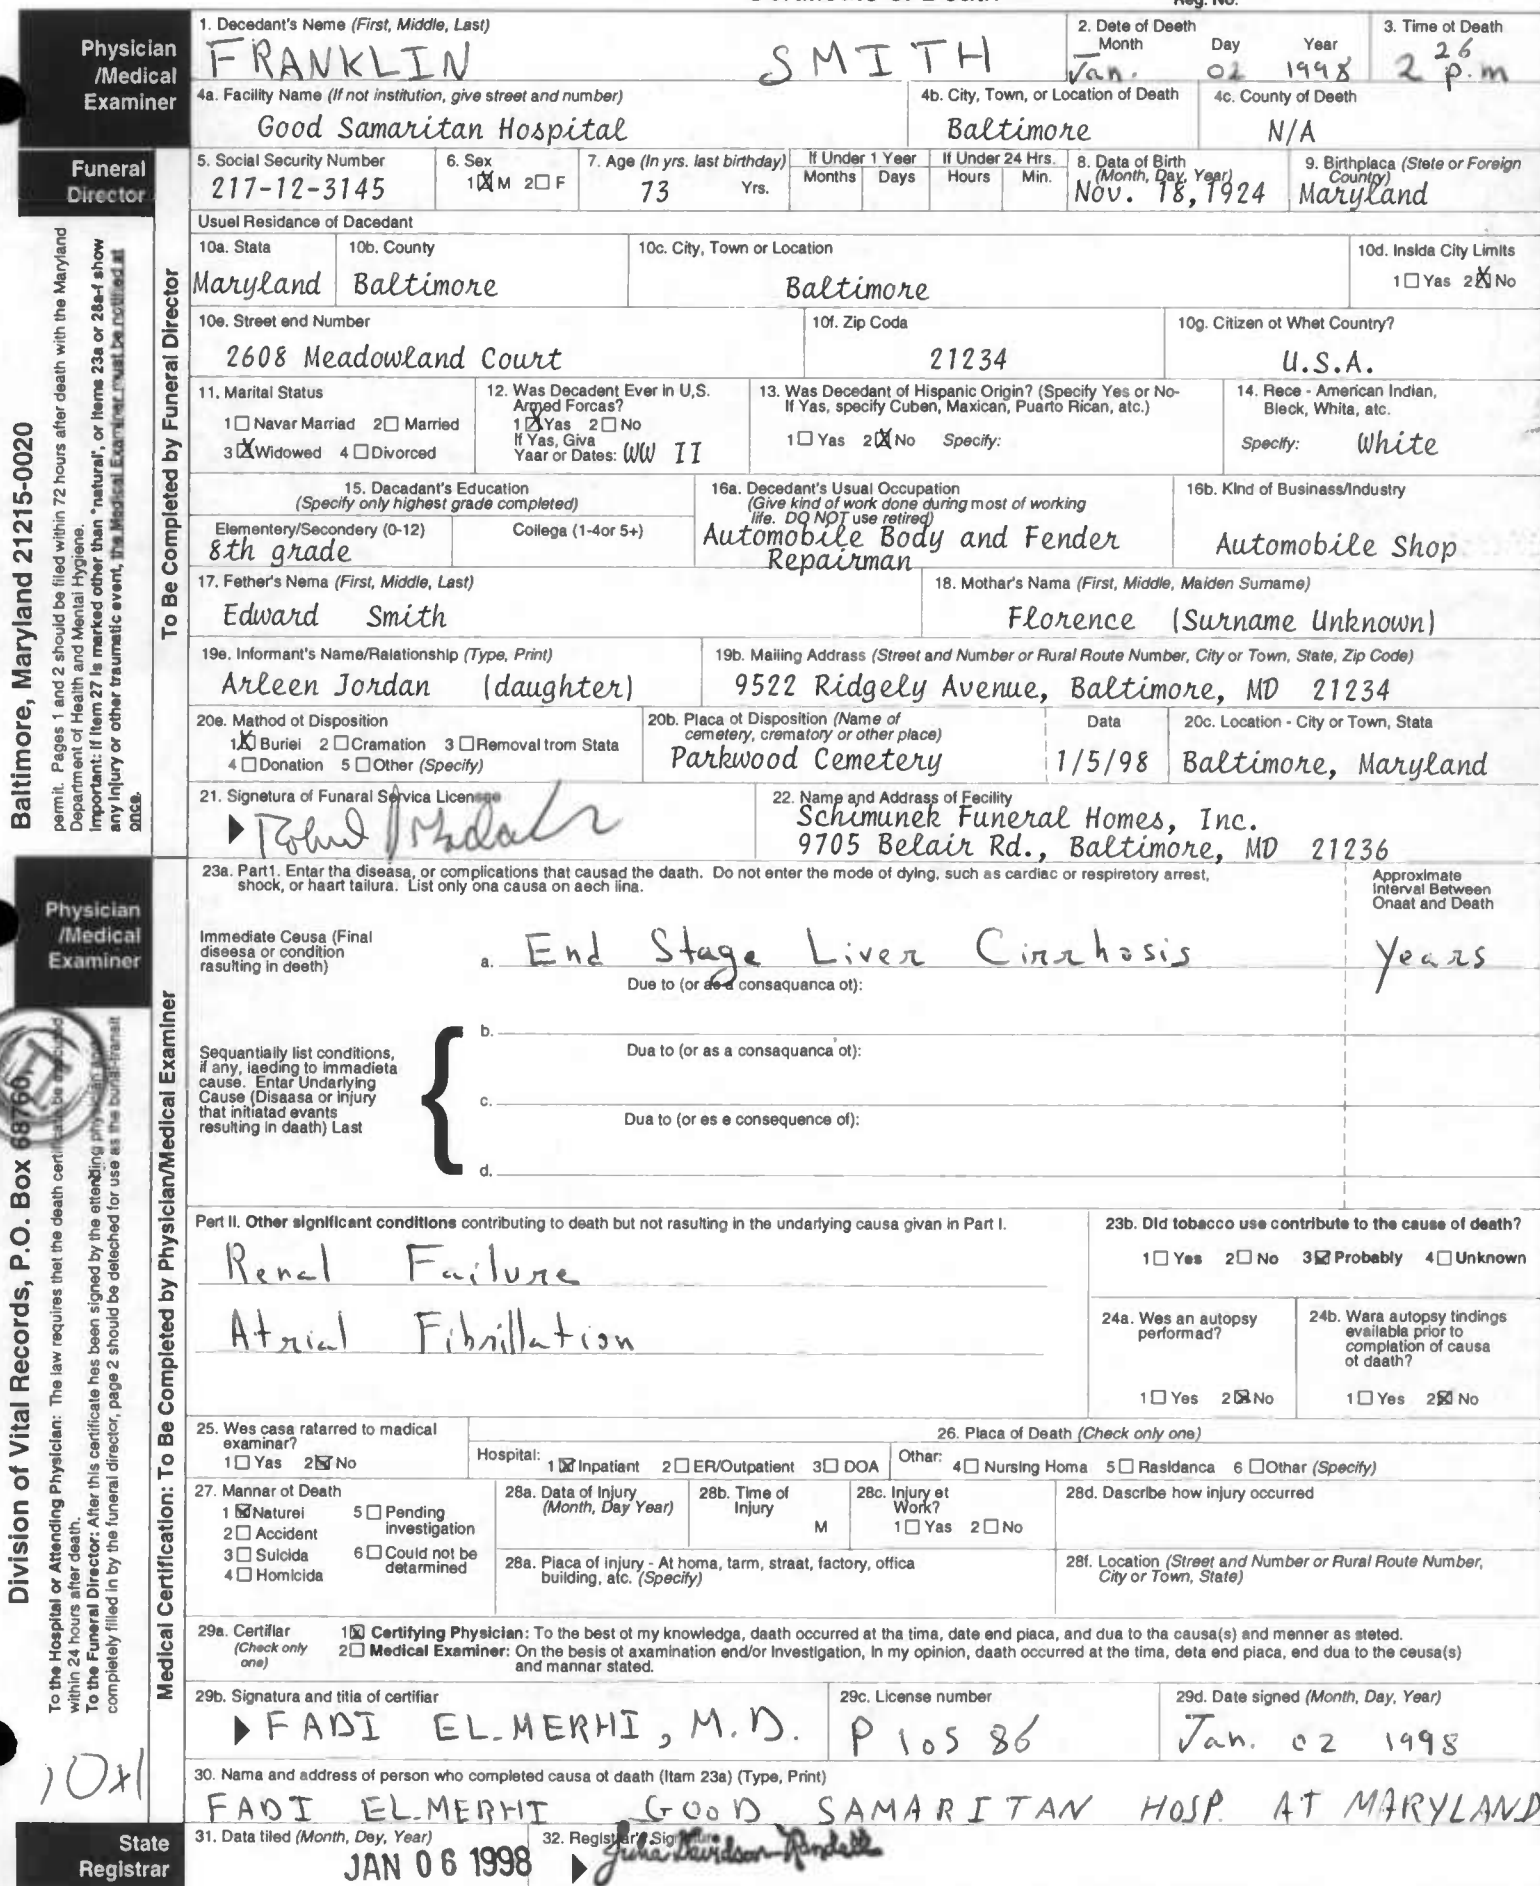 Physician
/Medical
Examiner
1. Decedant's Neme (First, Middle, Last)
FRANKLIN SMITH
2. Dete of Deeth
Month Day Year
Jan. 02 1998
3. Time ot Death
2 26 p.m
4a. Facility Name (If not institution, give street and number)
Good Samaritan Hospital
4b. City, Town, or Location of Death
Baltimore
4c. County of Deeth
N/A
Funeral
Director
5. Social Security Number
217-12-3145
6. Sex
1☒M 2☐F
7. Age (In yrs. last birthday)
73 Yrs.
If Under 1 Year
Months Days
If Under 24 Hrs.
Hours Min.
8. Data of Birth
(Month, Day, Year)
Nov. 18, 1924
9. Birthplaca (Stete or Foreign
Country)
Maryland
Usuel Residance of Dacedant
10a. Stata
Maryland
10b. County
Baltimore
10c. City, Town or Location
Baltimore
10d. Insida City Limits
1☐Yas 2☒No
10e. Street end Number
2608 Meadowland Court
10f. Zip Coda
21234
10g. Citizen ot Whet Country?
U.S.A.
11. Marital Status
1☐Navar Marriad 2☐Married
3☒Widowed 4☐Divorced
12. Was Decadent Ever in U,S.
Armed Forcas?
1☒Yas 2☐No
If Yas, Giva
Yaar or Dates: WW II
13. Was Decedant of Hispanic Origin? (Specify Yes or No-
If Yas, specify Cuben, Maxican, Puarto Rican, atc.)
1☐Yas 2☒No Specify:
14. Rece - American Indian,
Bleck, Whita, atc.
Specify: White
15. Dacadant's Education
(Specify only highest grade completed)
Elementery/Secondery (0-12)
8th grade
Coilega (1-4or 5+)
16a. Decedant's Usual Occupation
(Give kind of work done during most of working
life. DO NOT use retired)
Automobile Body and Fender
Repairman
16b. Kind of Businass/Industry
Automobile Shop
17. Fether's Nema (First, Middle, Last)
Edward Smith
18. Mothar's Nama (First, Middle, Maiden Surname)
Florence (Surname Unknown)
19e. Informant's Name/Ralationship (Type, Print)
Arleen Jordan (daughter)
19b. Maiiing Address (Street and Number or Rural Route Number, City or Town, State, Zip Code)
9522 Ridgely Avenue, Baltimore, MD 21234
20e. Mathod ot Disposition
1☒Buriei 2☐Cramation 3☐Removal trom Stata
4☐Donation 5☐Other (Specify)
20b. Placa ot Disposition (Name of
cemetery, crematory or other place)
Parkwood Cemetery
Data
1/5/98
20c. Location - City or Town, Stata
Baltimore, Maryland
21. Signetura of Funaral Sarvica Licensee
22. Name and Address of Fecility
Schimunek Funeral Homes, Inc.
9705 Belair Rd., Baltimore, MD 21236
To Be Completed by Funeral Director
Baltimore, Maryland 21215-0020
permit. Pages 1 and 2 should be filed within 72 hours after death with the Maryland
Department of Health and Mental Hygiene.
Important: If item 27 is marked other than "natural", or items 23a or 28a-f show
any injury or other traumatic event, the Medical Examiner must be notified at
once.
Physician
/Medical
Examiner
23a. Part1. Enter tha diseasa, or complications that causad the daath. Do not enter the mode of dying, such as cardiac or respiretory arrest,
shock, or haart tailura. List only ona causa on aech iina.
Approximate
Interval Between
Onaat and Death
Immediate Ceusa (Final
diseesa or condition
rasulting in deeth)
a. End Stage Liver Cirrhosis
Years
Due to (or as a consaquanca ot):
b.
Dua to (or as a consaquanca ot):
Sequantially list conditions,
if any, iaeding to immadieta
cause. Entar Undarlying
Cause (Disaasa or injury
that initiatad evants
resulting in daath) Last
c.
Dua to (or es e consequence of):
d.
Part II. Other significant conditions contributing to death but not rasulting in the undarlying causa givan in Part I.
Renal Failure
Atrial Fibrillation
23b. Did tobacco use contribute to the cause of death?
1☐Yes 2☐No 3☒Probably 4☐Unknown
24a. Wes an autopsy
performad?
1☐Yes 2☒No
24b. Wara autopsy tindings
evailable prior to
complation of causa
ot daath?
1☐Yes 2☒No
25. Wes casa ratarred to madical
examinar?
1☐Yas 2☒No
26. Placa of Death (Check only one)
Hospital: 1☒Inpatiant 2☐ER/Outpatient 3☐DOA Other: 4☐Nursing Homa 5☐Rasidanca 6☐Othar (Specify)
27. Mannar ot Death
1☒Naturei
2☐Accident
3☐Suicida
4☐Homicida
5☐Pending
investigation
6☐Could not be
determined
28a. Data of Injury
(Month, Day Year)
28b. Time of
Injury
M
28c. Injury et
Work?
1☐Yas 2☐No
28d. Dascribe how injury occurred
28a. Piaca of injury - At homa, tarm, straat, factory, offica
building, atc. (Specify)
28f. Location (Street and Number or Rural Route Number,
City or Town, State)
29a. Certifiar
(Check only
one)
1☒Certifying Physician: To the best ot my knowledga, daath occurred at tha tima, date end piaca, and dua to tha causa(s) and menner as steted.
2☐Medical Examiner: On the besis ot axamination end/or Investlgation, In my opinion, daath occurred at the tima, deta end piaca, end dua to the ceusa(s)
and mannar stated.
29b. Signatura and titia of certifiar
FADI EL-MERHI, M.D.
29c. License number
P 10586
29d. Date signed (Month, Day, Year)
Jan. 02 1998
30. Nama and address of parson who completed causa ot daath (Itam 23a) (Type, Print)
FADI EL-MERHI GOOD SAMARITAN HOSP. AT MARYLAND
State
Registrar
31. Data tiled (Month, Dey, Year)
JAN 06 1998
32. Registrar's Signature
Julia Davidson-Randall
Medical Certification: To Be Completed by Physician/Medical Examiner
Division of Vital Records, P.O. Box 68760,
To the Hospital or Attending Physician: The law requires thet the death certificate be
within 24 hours after death.
To the Funeral Director: After this certificate hes been signed by the ettending physician and
completely filled in by the funeral director, page 2 should be deteched for use as the burial-transit